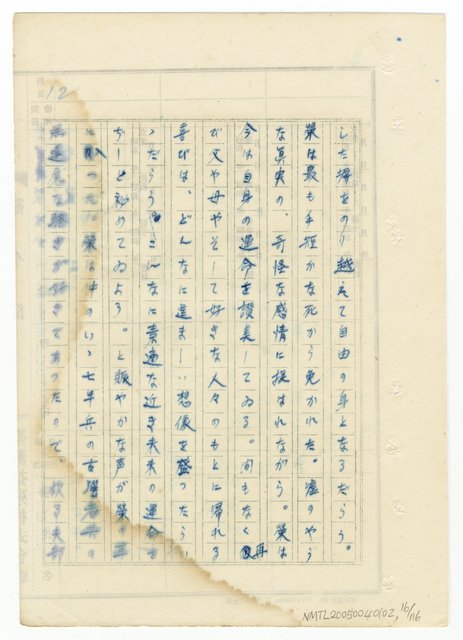 12
した塀をのり越えて自由の身となるだらう。
榮は最も手短かな死から免かれた。嘘のやう
な真実の、奇怪な感情に揺ぶれながら。榮は
今は自身の運命を讃美してゐる。間もなく再
び父や母やそして好きな人々のもとに帰れる
喜びは、どんなに逞ましい想像を盛つたらい
ゝだらう。こんなに素適な近き未来の運命を
ぢーと秘めてゐよう。と賑やかな声が榮の耳
に入つた。榮は仲のいゝ七年兵の古 者 の
無 な騒ぎが好きであつたので、
NMTL20050040102, 16/116